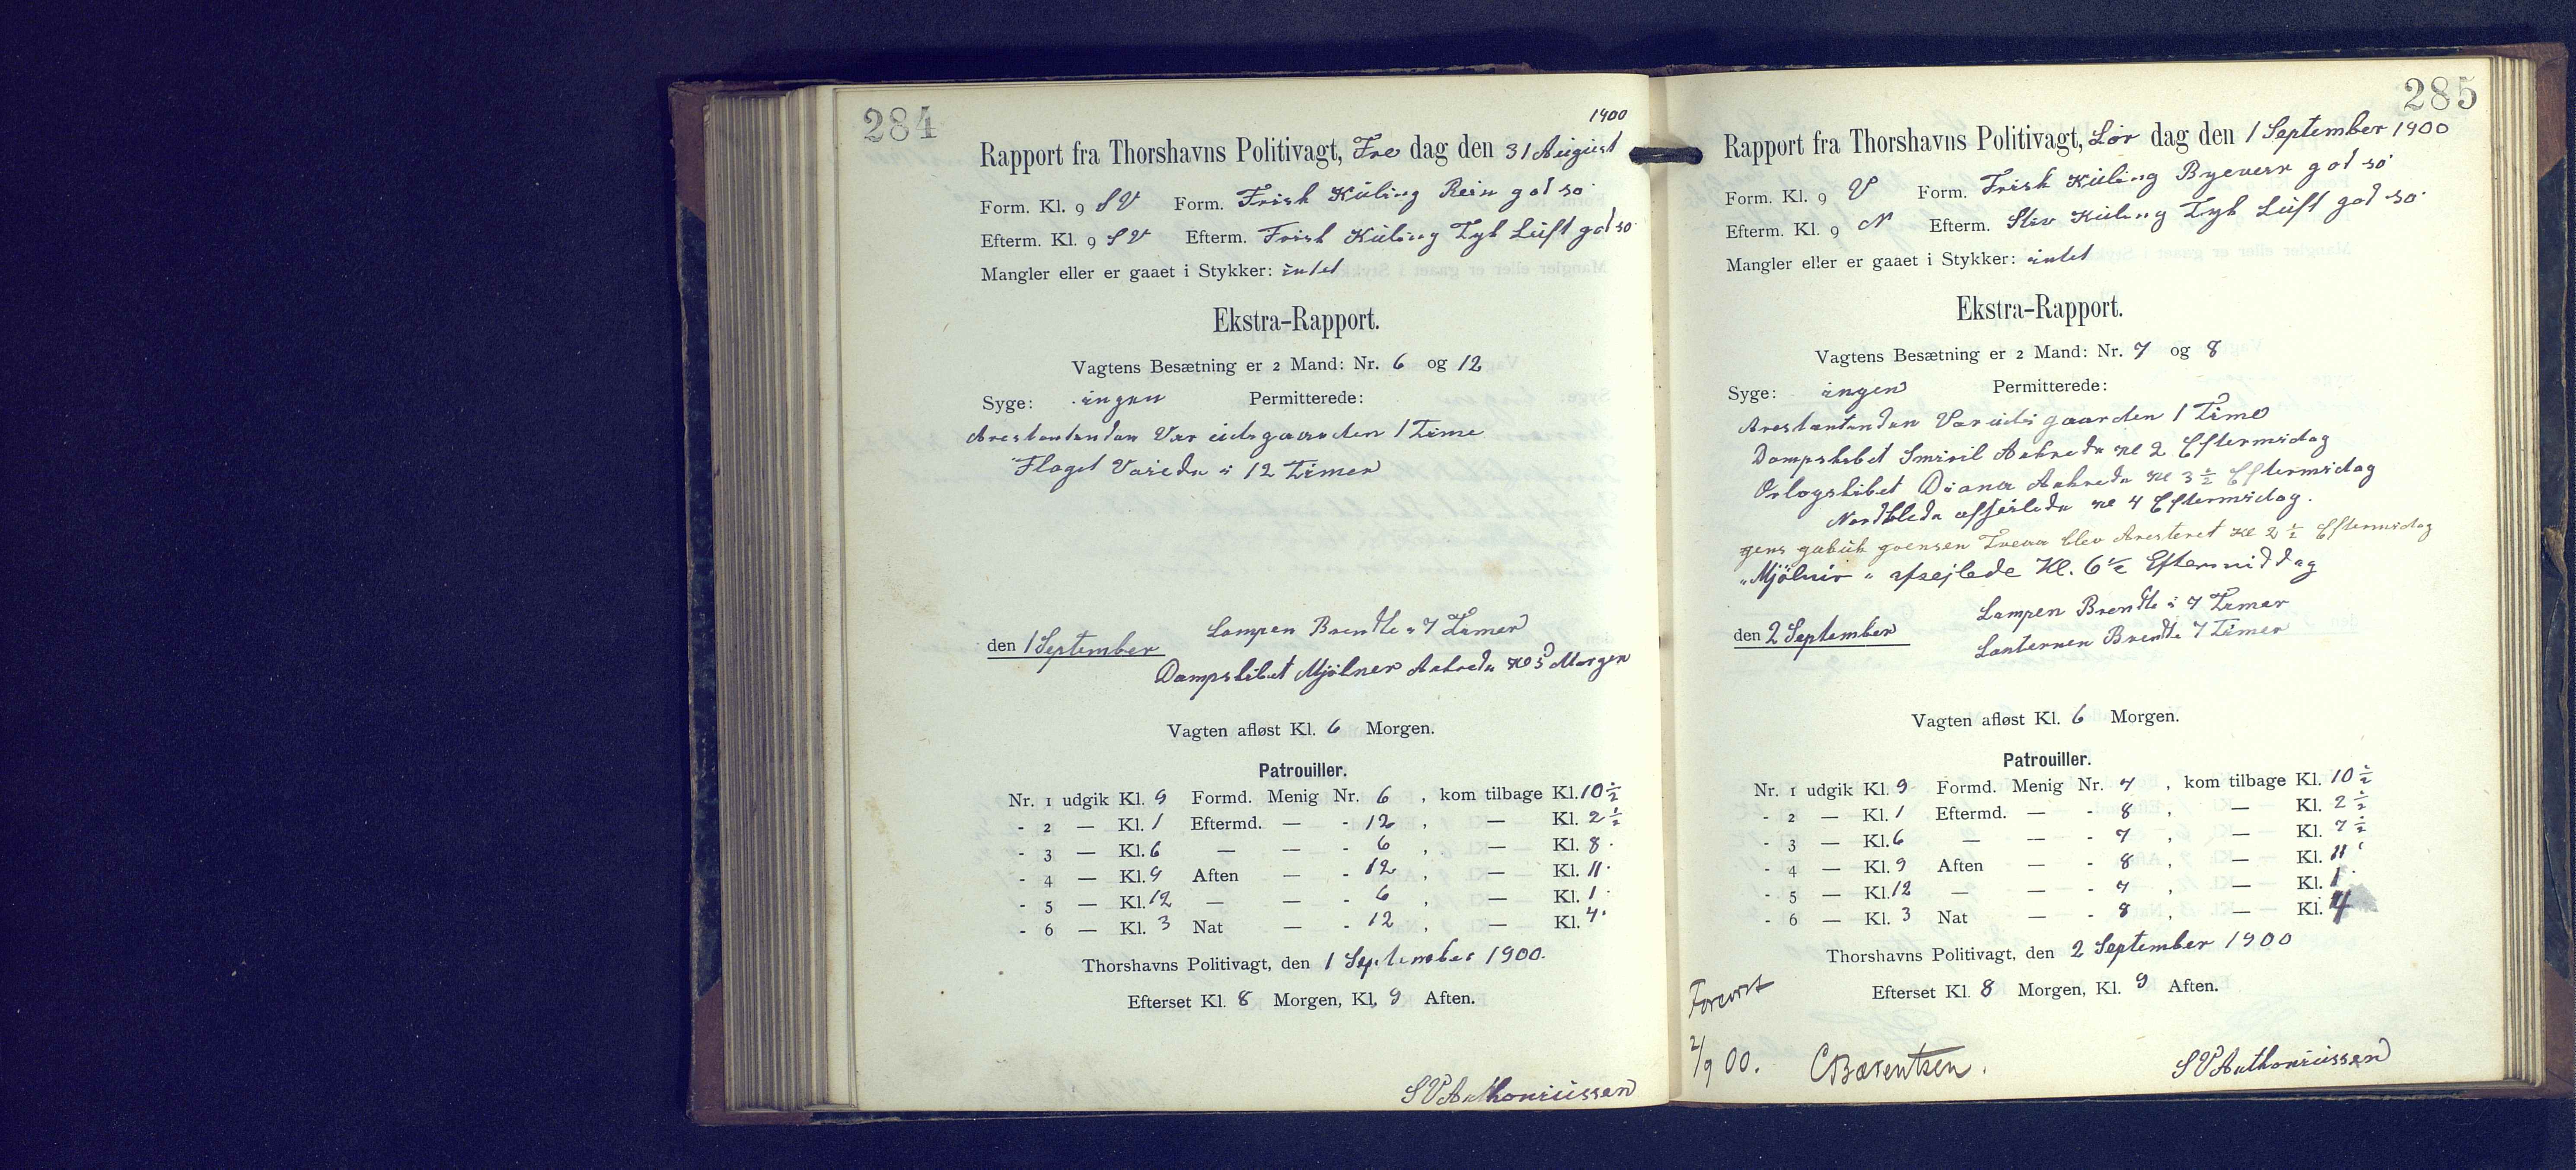 284
1900
Rapport fra Thorshavns Politivagt, Fre dag den 31 August
Form. Kl. 9 SV Form. Frisk Kuling Rein god sø
Efterm. Kl. 9 SV Efterm. Frisk Kuling Tyk Luft god sø
Mangler eller er gaaet i Stykker: intet
Ekstra-Rapport.
Vagtens Besætning er 2 Mand: Nr. 6 og 12
Syge: ingen Permitterede:
Arestantenden Var udi gaarden 1 Time
Flaget Vaiede i 12 Timer
den 1 September Lampen Brendte i 7 Timer
Dampskibet Mjölner Ankrede Kl 5 Morgen
Vagten afløst Kl. 6 Morgen.
Patrouiller.
Nr. 1 udgik Kl. 9 Formd. Menig Nr. 6 , kom tilbage Kl. 10 ½
- 2 — Kl. 1 Eftermd. — - 12 , — Kl. 2 ½
- 3 — Kl. 6 — — - 6 , — Kl. 8 ·
- 4 — Kl. 9 Aften — - 12 , — Kl. 11 ·
- 5 — Kl. 12 — — - 6 , — Kl. 1 ·
- 6 — Kl. 3 Nat — - 12 , — Kl. 4 ·
Thorshavns Politivagt, den 1 September 1900.
Efterset Kl. 8 Morgen, Kl. 9 Aften.
SVAnthoniussen
285
Rapport fra Thorshavns Politivagt, Lør dag den 1 September 1900
Form. Kl. 9 V Form. Frisk Kuling Byeveir god sø
Efterm. Kl. 9 N Efterm. Stiv Kuling Tyk Luft god sø
Mangler eller er gaaet i Stykker: intet
Ekstra-Rapport.
Vagtens Besætning er 2 Mand: Nr. 7 og 8
Syge: ingen Permitterede:
Arestantenden Var udi gaarden 1 Time
Dampskibet Smiril Ankrede Kl 2 Eftermidag
Orlogskibet Diana Ankrede Kl 3 ½ Eftermidag
afseilede Kl 4 Eftermidag.
blev Aresteret Kl 2 ½ Eftermidag
„Mjölnir" afsejlede Kl. 6 ½ Eftermiddag
den 2 September Lampen Brendte i 7 Timer
Lanternen Brendte 7 Timer
Vagten afløst Kl. 6 Morgen.
Patrouiller.
Nr. 1 udgik Kl. 9 Formd. Menig Nr. 7 , kom tilbage Kl. 10 ½
- 2 — Kl. 1 Eftermd. — - 8 , — Kl. 2 ½
- 3 — Kl. 6 — — - 7 , — Kl. 7 ½
- 4 — Kl. 9 Aften — - 8 , — Kl. 11 ·
- 5 — Kl. 12 — — - 7 , — Kl. 1 ·
- 6 — Kl. 3 Nat — - 8 , — Kl. 4
Thorshavns Politivagt, den 2 September 1900
Efterset Kl. 8 Morgen, Kl. 9 Aften.
Forevist
2/9 00. CBærentsen.
SVAnthoniussen